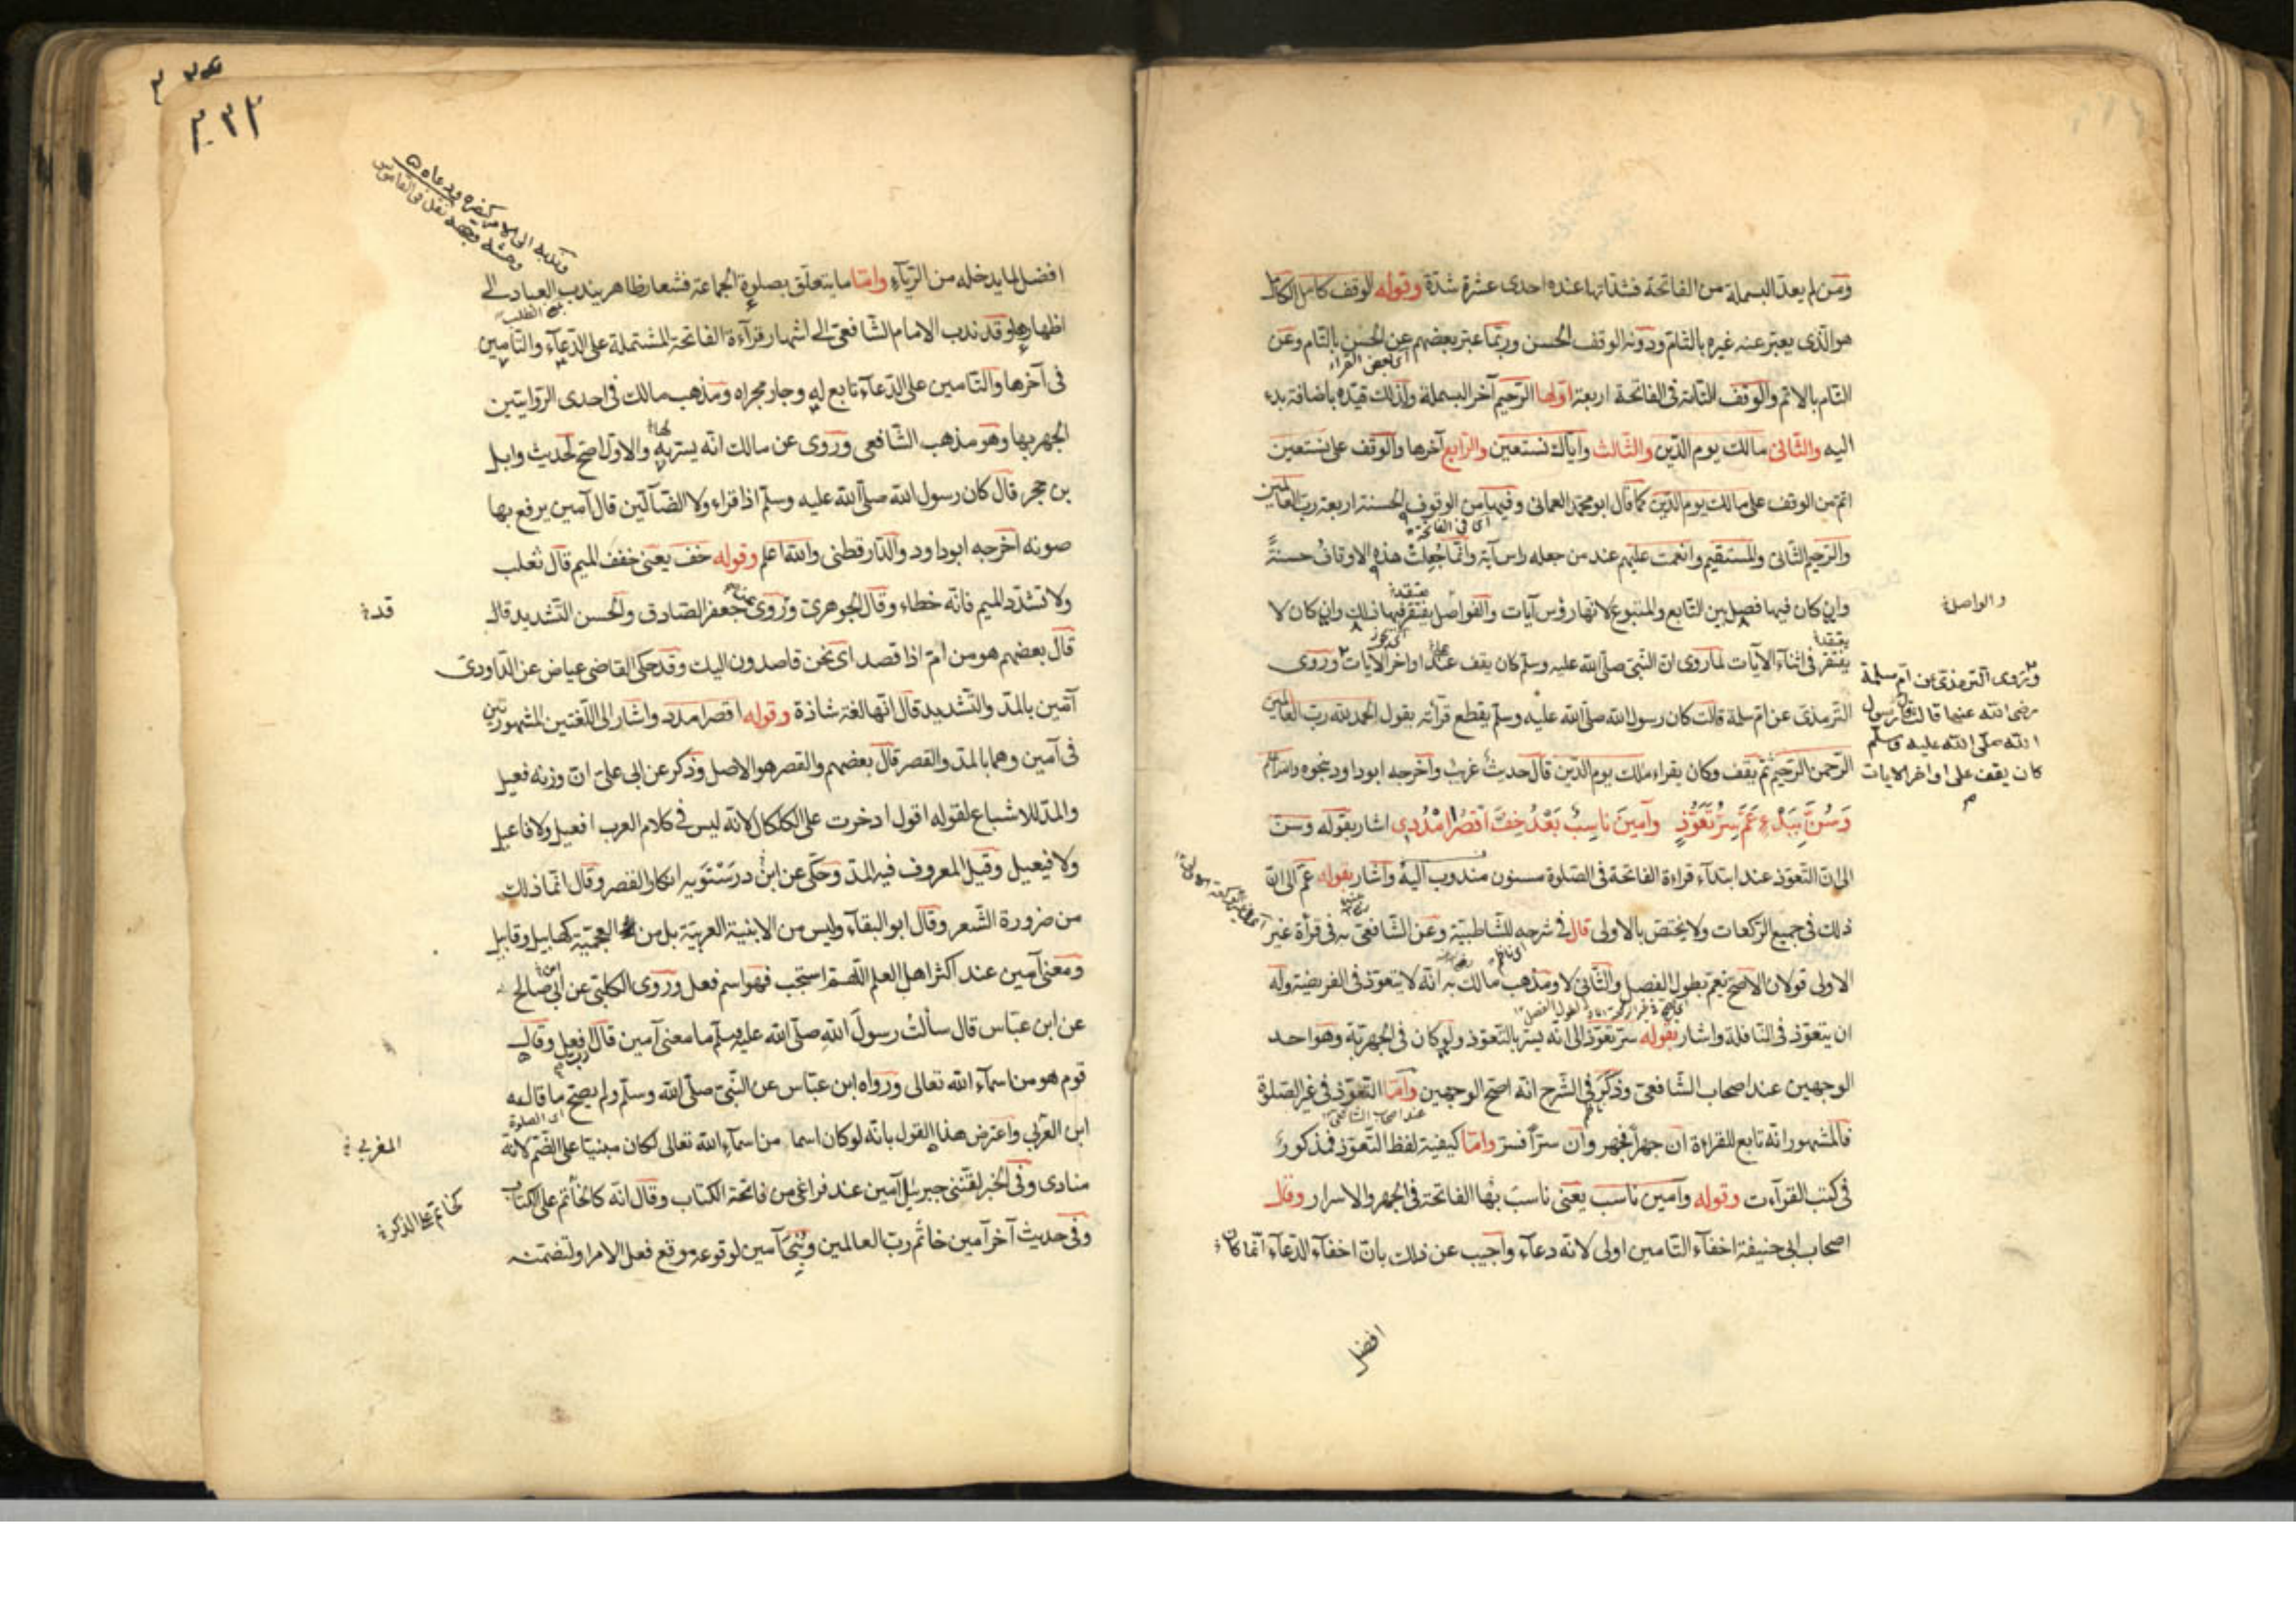 ومن لم يعدّ البسملة من الفاتحة فشدّاتها عنده احدى عشرة شدّة وقوله الوقف كامل الكامل
هو الّذى يعبّر عنه غيره بالتّام ودونه الوقف الحسن وربّما عبّر بعضهم عن الحسن بالتام وعن
اى بعض القراء
التام بالاتم والوقف التامّة فى الفاتحة اربعة اولها الرّحيم آخر البسملة ولذلك قيّده باضافة بدء
اليه والثّانى مالك يوم الدّين والثّالث وايّاك نستعين والرّابع آخرها والوقف على نستعين
اتم من الوقف على مالك يوم الدّين كما قال ابو محمد العمانى وفيها من الوقوف الحسنة اربعة ربّ العالمين
اى فى الفاتحة
والرّحيم الثّانى والمستقيم وانعمت عليهم عند من جعله راس آية وانّما جُعِلت هذه الاوقاف حسنةً
وان كان فيها فصل بين التّابع والمتبوع لانها رؤس آيات والفواصل يفتقر فيها ذلك وان كان لا
والواصل
يفتقر فى اثناء الآيات لما روى انّ النّبى صلّى الله عليه وسلّم كان يقف على اواخر الآيات وروى
الترمذى عن امّ سلمة قالت كان رسول الله صلّى الله عليه وسلّم يقطع قرأته يقول الحمد لله ربّ العالمين
الرّحمن الرّحيم ثمّ يقف وكان يقراء ملك يوم الدّين قال حديث غريب واخرجه ابو داود بنحوه
وروى الترمذى عن امّ سلمة
رضى الله عنها قالت كان رسول
الله صلّى الله عليه وسلّم
كان يقف على اواخر الايات
وَسُنَّ بِبَدْءٍ عَمَّ سِرُّ تَعَوُّذٍ وآمينَ ناسِبْ بَعْدُ خِفَّ اقصُرا مْدُدِ اشار بقوله وسنّ
الى انّ التّعوّذ عند ابتداء قراءة الفاتحة فى الصّلوة مسنون مندوب اليه واشار بقوله عمّ الى انّ
ذلك فى جميع الرّكعات ولا يختصّ بالاولى قال فى شرحه للشّاطبيّة وعن الشّافعى فى قرأة غير
الاولى قولان الاصحّ نعم بطول الفصل والثّانى لا ومذهب مالك انّه لا يتعوّذ فى الفريضة وله
ان يتعوّذ فى النّافلة واشار بقوله سرّ تعوّذ الى انّه يسرّ بالتّعوّذ ولو كان فى الجهريّة وهو احد
الوجهين عند اصحاب الشّافعى وذكر فى الشّرح انّه اصحّ الوجهين وامّا التّعوّذ فى غير الصّلوة
عند اصحاب الشافعى
فالمشهور انّه تابع للقراءة ان جهراً فجهر وان سرّاً فسرّ وامّا كيفيّة لفظ التّعوّذ فمذكورٌ
فى كتب القرآءت وقوله وآمين ناسب يعنى ناسب بها الفاتحة فى الجهر والاسرار وقال
اصحاب ابى حنيفة اخفاء التّامين اولى لانّه دعاء واجيب عن ذلك بانّ اخفاء الدّعاء انّما كان
افضل
افضل لما يدخله من الرّياء وامّا ما يتعلّق بصلوة الجماعة فشعار ظاهر يندب العباد الى
اظهاره وقد ندب الامام الشّافعى الى اشهار قرآءة الفاتحة المشتملة على الدّعاء والتّامين
فى آخرها والتّامين على الدّعاء تابع له وجار مجراه ومذهب مالك فى احدى الرّوايتين
الجهر بها وهو مذهب الشّافعى وروى عن مالك انّه يسرّ به والاوّل اصحّ لحديث وابل
بن حجر قال كان رسول الله صلّى الله عليه وسلّم اذا قراء ولا الضّآلّين قال آمين يرفع بها
صوته اخرجه ابو داود والدّارقطنى والله اعلم وقوله خف يعنى خفف الميم قال ثعلب
ولا تشدّد الميم فانّه خطاء وقال الجوهرىّ وروى عن جعفر الصّادق والحسن التّشديد قال
قد
قال بعضهم هو من امّ اذا قصد اى نحن قاصدون اليك وقد حكى القاضى عياض عن الدّاودىّ
آمّين بالمدّ والتّشديد قال انّها لغة شاذة وقوله اقصرا مدد واشار الى اللّغتين المشهورتين
فى آمين وهما بالمدّ والقصر قال بعضهم والقصر هو الاصل وذكر عن ابى علىّ انّ وزنه فعيل
والمدّ للاشباع لقوله اقول اذ خرت على الكلكال لانّه ليس فى كلام العرب افعيل ولا فاعيل
ولا فيعيل وقيل المعروف فيه المدّ وحكى عن ابن درستويه انكار القصر وقال انّما ذلك
من ضرورة الشّعر وقال ابو البقاء وليس من الابنية العربيّة بل من العجميّة كهابيل وقابيل
ومعنى آمين عند اكثر اهل العلم اللّهمّ استجب فهو اسم فعل وروى الكلبّى عن ابى صالح
عن ابن عبّاس قال سألت رسول الله صلّى الله عليه وسلّم ما معنى آمين قال افعل وقال
قوم هو من اسماء الله تعالى ورواه ابن عبّاس عن النّبىّ صلّى الله وسلّم ولم يصحّ ما قاله
ابن العربى واعترض هذا القول بانّه لو كان اسما من اسماء الله تعالى لكان مبنيّا على الضّم لانّه
المغربى
منادى وفى الخبر لقّننى جبرئيل آمين عند فراغى من فاتحة الكتاب وقال انّه كالخاتم على الكتاب
وفى حديث آخر آمين خاتم ربّ العالمين وبنى آمين لوقوعه موقع فعل الامر او لتضمّنه